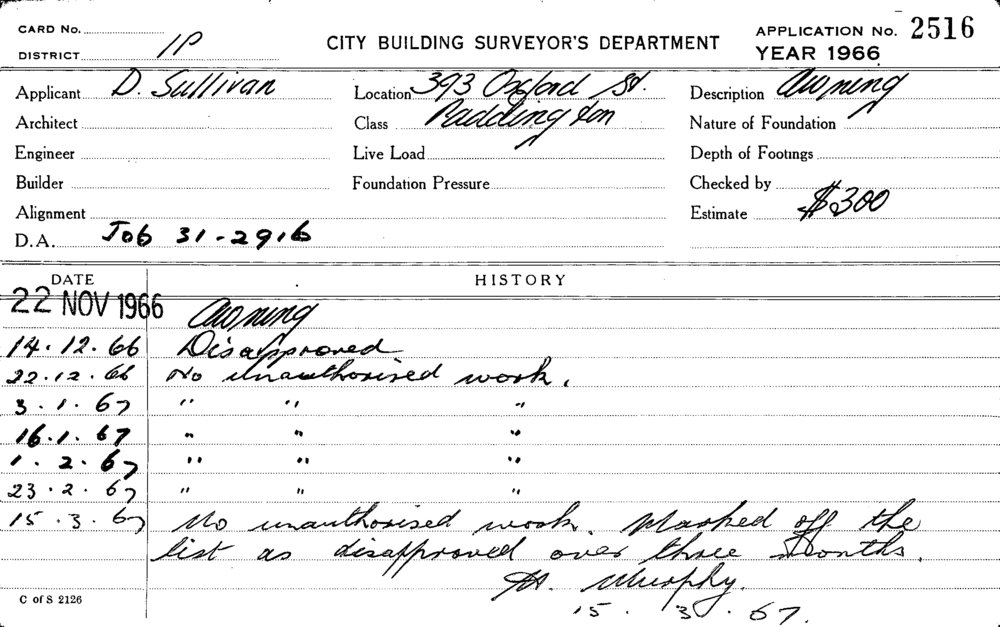 CARD No. CITY BUILDING SURVEYOR'S DEPARTMENT APPLICATION No. 2516
DISTRICT 1P YEAR 1966
Applicant D. Sullivan Location 393 Oxford St. Description Awning
Architect Class Paddington Nature of Foundation
Engineer Live Load Depth of Footings
Builder Foundation Pressure Checked by
Alignment Estimate $300
D.A. Job 31-2916
DATE HISTORY
22 NOV 1966 Awning
14.12.66 Disapproved
22.12.66 No unauthorised work.
3.1.67 " " "
16.1.67 " " "
1.2.67 " " "
23.2.67 " " "
15.3.67 No unauthorised work. Marked off the
list as disapproved over three months.
Murphy.
15.3.67.
C of S 2126